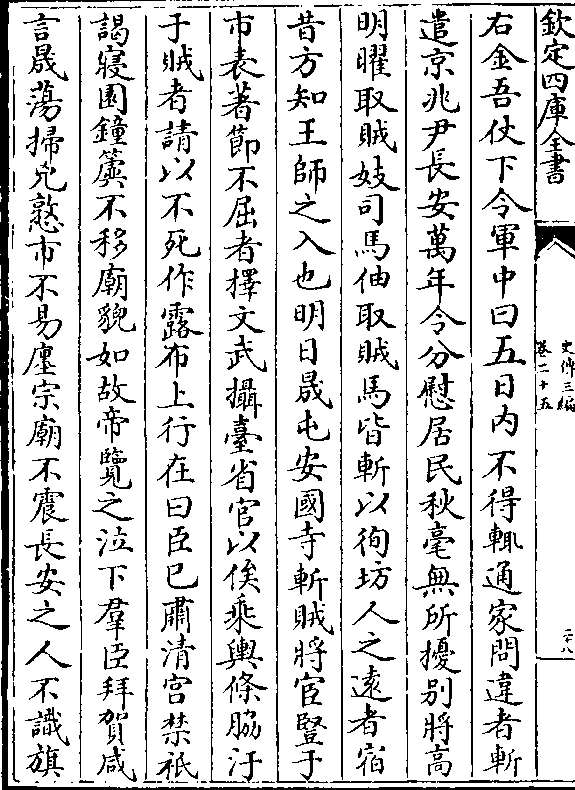 欽定四庫全書
史傳三編
卷二十五
二十八
右金吾仗下令軍中曰五日内不得輒通家問違者斬
遣京兆尹長安萬年令分慰居民秋毫無所擾别將髙
明曜取賊妓司馬伷取賊馬皆斬以徇坊人之遠者宿
昔方知王師之入也明日晟屯安國寺斬賊將宦豎于
市表著節不屈者擇文武攝臺省官以俟乘輿條脇汙
于賊者請以不死作露布上行在曰臣已肅清宫禁祗
謁寢園鐘簴不移廟貌如故帝覽之泣下羣臣拜賀咸
言晟蕩掃兇憝市不易廛宗廟不震長安之人不識旗